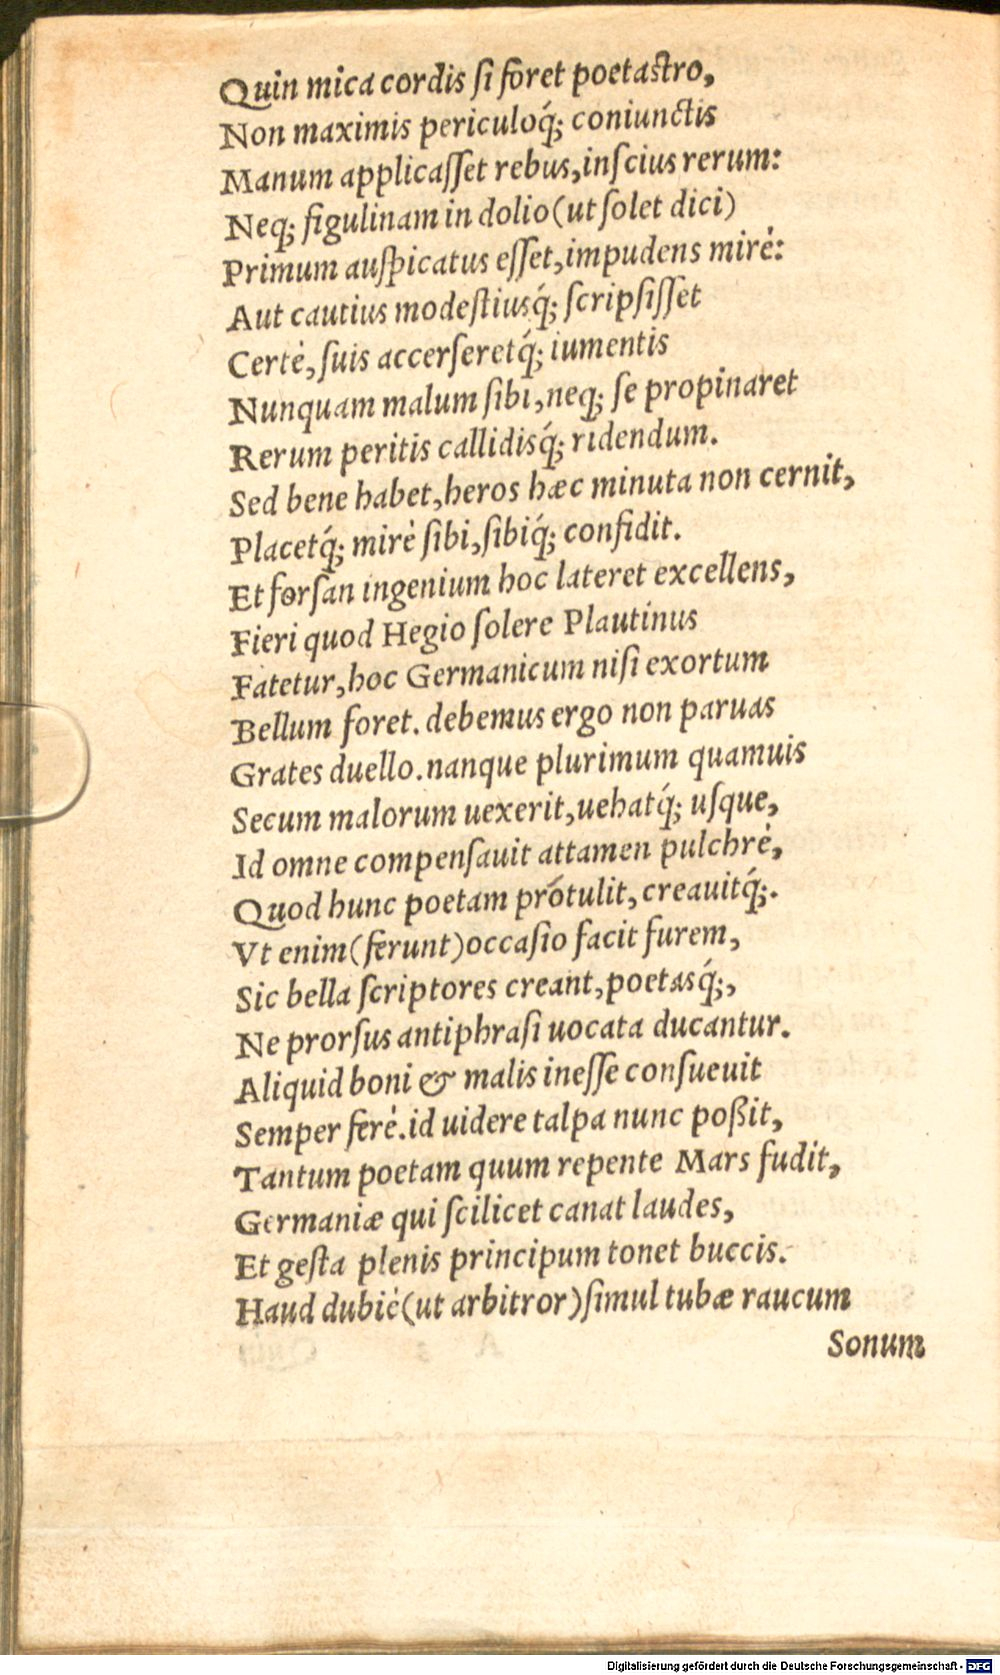 Quin mica cordis ſi foret poetastro,
Non maximis periculoq́; coniunctis
Manum applicaſſet rebus, inſcius rerum:
Neq; figulinam in dolio (ut ſolet dici)
Primum auſpicatus eſſet, impudens mirè:
Aut cautius modeſtiusq́; ſcripſiſſet
Certè, ſuis accerſeretq́; iumentis
Nunquam malum ſibi, neq; ſe propinaret
Rerum peritis callidisq́; ridendum.
Sed bene habet, heros hæc minuta non cernit,
Placetq́; mirè ſibi, ſibiq́; confidit.
Et forſan ingenium hoc lateret excellens,
Fieri quod Hegio ſolere Plautinus
Fatetur, hoc Germanicum niſi exortum
Bellum foret. debemus ergo non paruas
Grates duello. nanque plurimum quamuis
Secum malorum uexerit, uehatq́; uſque,
Id omne compenſauit attamen pulchrè,
Quod hunc poetam prótulit, creauitq́;.
Vt enim (ferunt) occaſio facit furem,
Sic bella ſcriptores creant, poetasq́;,
Ne prorſus antiphraſi uocata ducantur.
Aliquid boni & malis ineſſe conſueuit
Semper ferè. id uidere talpa nunc poßit,
Tantum poetam quum repente Mars fudit,
Germaniæ qui ſcilicet canat laudes,
Et geſta plenis principum tonet buccis.
Haud dubiè (ut arbitror) ſimul tubæ raucum
Sonum
Digitalisierung gefördert durch die Deutsche Forschungsgemeinschaft - DFG